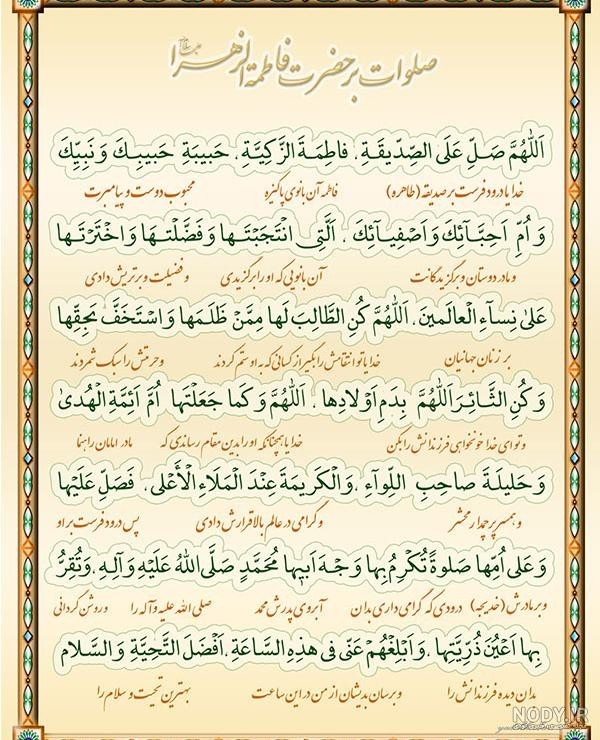 صلوات بر حضرت فاطمة الزهرا
اَللّٰهُمَّ صَلِّ عَلَى الصِّدّيقَةِ. فاطِمَةَ الزَّكِيَّةِ. حَبيبَةِ حَبيبِكَ وَ نَبِيِّكَ
خدایا درود فرست بر صدیقه (طاهره) فاطمه آن بانوی پاکیزه محبوب دوست و پیامبرت
وَ اُمِّ اَحِبَّآئِكَ وَاَصْفِيـآئِكَ ، اَلَّتِى انْتَجَبْتَـها وَ فَضَّلْتَـها وَاخْتَرْتَـها
و مادر دوستان و برگزیدگانت آن بانویی که او را برگزیدی و فضیلت و برتریش دادی
عَلىٰ نِسآءِ الْعالَمينَ. اَللّٰهُمَّ كُنِ الطّالِبَ لَها مِمَّنْ ظَلَمَها وَاسْتَخَفَّ بَحِقِّها
بر زنان جهانیان خدایا تو انتقامش را بگیر از کسانی که به او ستم کردند و حرمتش را سبک شمردند
وَ كُنِ الثّـائِـرَ اَللّٰهُمَّ بِدَمِ اَوْلادِها . اَللّٰهُمَّ وَ كَما جَعَلْتَها اُمَّ اَئِمَّةِ الْهُدىٰ
و تو ای خدا خونخواهی فرزندانش را بکن خدایا همچنانکه او را بدین مقام رساندی که مادر امامان راهنما
وَ حَليلَةَ صاحِبِ اللِّوآءِ .وَالْكَريمَةَ عِنْدَ الْمَلَاءِ الْأَعْلى. فَصَلِّ عَلَيْها
و همسر پرچمدار محشر و گرامی در عالم بالا قرارش دادی پس درود فرست بر او
وَ عَلى اُمِّها صَلوةً تُكْرِمُ بِها وَجْهَ اَبيها مُحَمَّدٍ صَلَّى اللّٰهُ عَلَيْهِ وَآلِهِ .وَتُقِرُّ
و بر مادرش (خدیجه) درودی که گرامی داری بدان آبروی پدرش محمد صلی الله علیه و آله را و روشن گردانی
بِها اَعْيُنَ ذُرِّيَّتِها .وَاَبْلِغْهُمْ عَنّى فى هذِهِ السّاعَةِ اَفْضَلَ التَّحِيَّةِ وَالسَّلام
بدان دیده فرزندانش را و برسان بدیشان از من در این ساعت بهترین تحیت و سلام را
NODY.IR